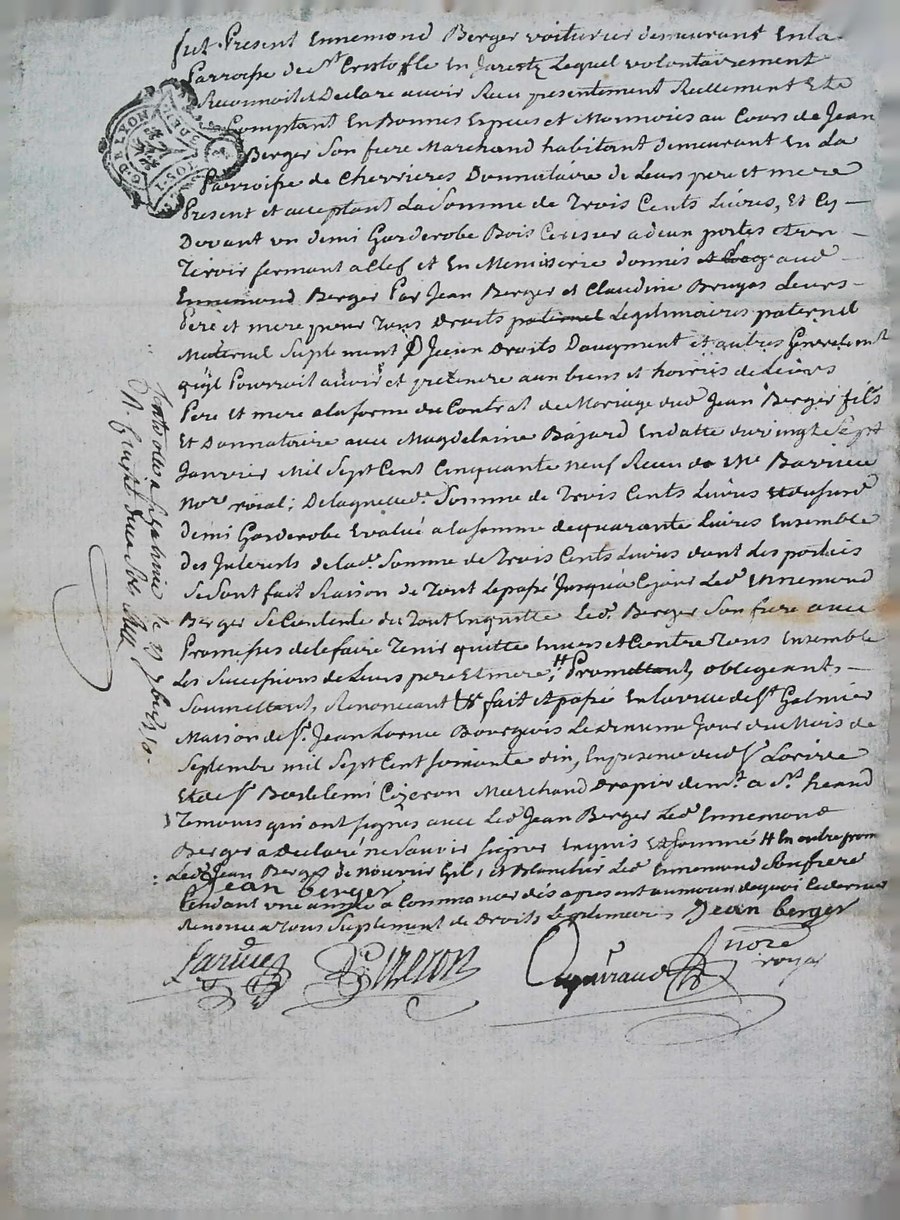 fut Present Ennemond Berger voiturier demeurant En la
Parroisse de St Cristofle En Jarestz Lequel volontairement
Reconnoit et Declare avoir Receu presentement Reellement Et
Comptant En Bonnes Espices et Monnoies au Cours de Jean
Berger Son frere Marchand habitant demeurant En La
Parroisse de Chevrieres Donnataire de Leurs pere et mere
Present et acceptant La Somme de Trois Cents Livres, Et Cy
Devant un demi Garderobe Bois Cerisier a deux portes et un
Tiroir fermant a Clef et En Menuiserie donnés aud
Ennemond Berger Par Jean Berger et Claudine Bruyas Leurs
Pere et mere pour Tous Droits paternel Legitimaires paternel
Maternel Suplement D'Iceux Droits Daugment et autres Generalement
quil Pourroit avoir et pretendre aux biens et hoiries de Leurs
Pere et mere a la forme du Contrat de Mariage dud Jean Berger fils
Et Donnataire avec Magdelaine Bajard En datte du vingt Sept
Janvier Mil Sept Cent Cinquante neuf Receu de Me Barrieu
Nore roial; De laquelle de Somme de Trois Cents Livres Et dususd
demi Garderobe Evalué a la somme de quarante Livres Ensemble
Des Interests de lade Somme de Trois Cents Livres dont Les parties
Se Sont fait Raison de Tout Le passé Jusqua Ce jour Led Ennemond
Berger Se Contente du Tout En quitte Led Berger Son frere avec
Promesses de le faire Tenir quitte Envers et Contre Tous Ensemble
Les Successions de Leurs pere Et mere, # Promettant, obligeant,
Soumettant, Renonceant &a fait et passé En la ville de St Galmier
Maison de Sr Jean Larive Bourgeois Le Jour du Mois de
Septembre mil Sept Cent soixante dix, En presence dud Sr Larive
Et de Sr Bartelemi Cizeron Marchand Drapier demt a St heand
Temoins qui ont signés avec Led Jean Berger Led Ennemond
Berger a Declaré ne Savoir signer Enquis Et sommé # En outre prom
Led Jean Berger de nourrir et Blanchir Led Ennemond Son frere
Jean berger
Pendant une année a Commancer dés a present au moien de quoi Ce dernier
Renonce a Tous Suplement de Droits Legitimaires Jean berger
Larive
Cizeron
nore
royal
G. DE LYON
Controllé a St Galmier le